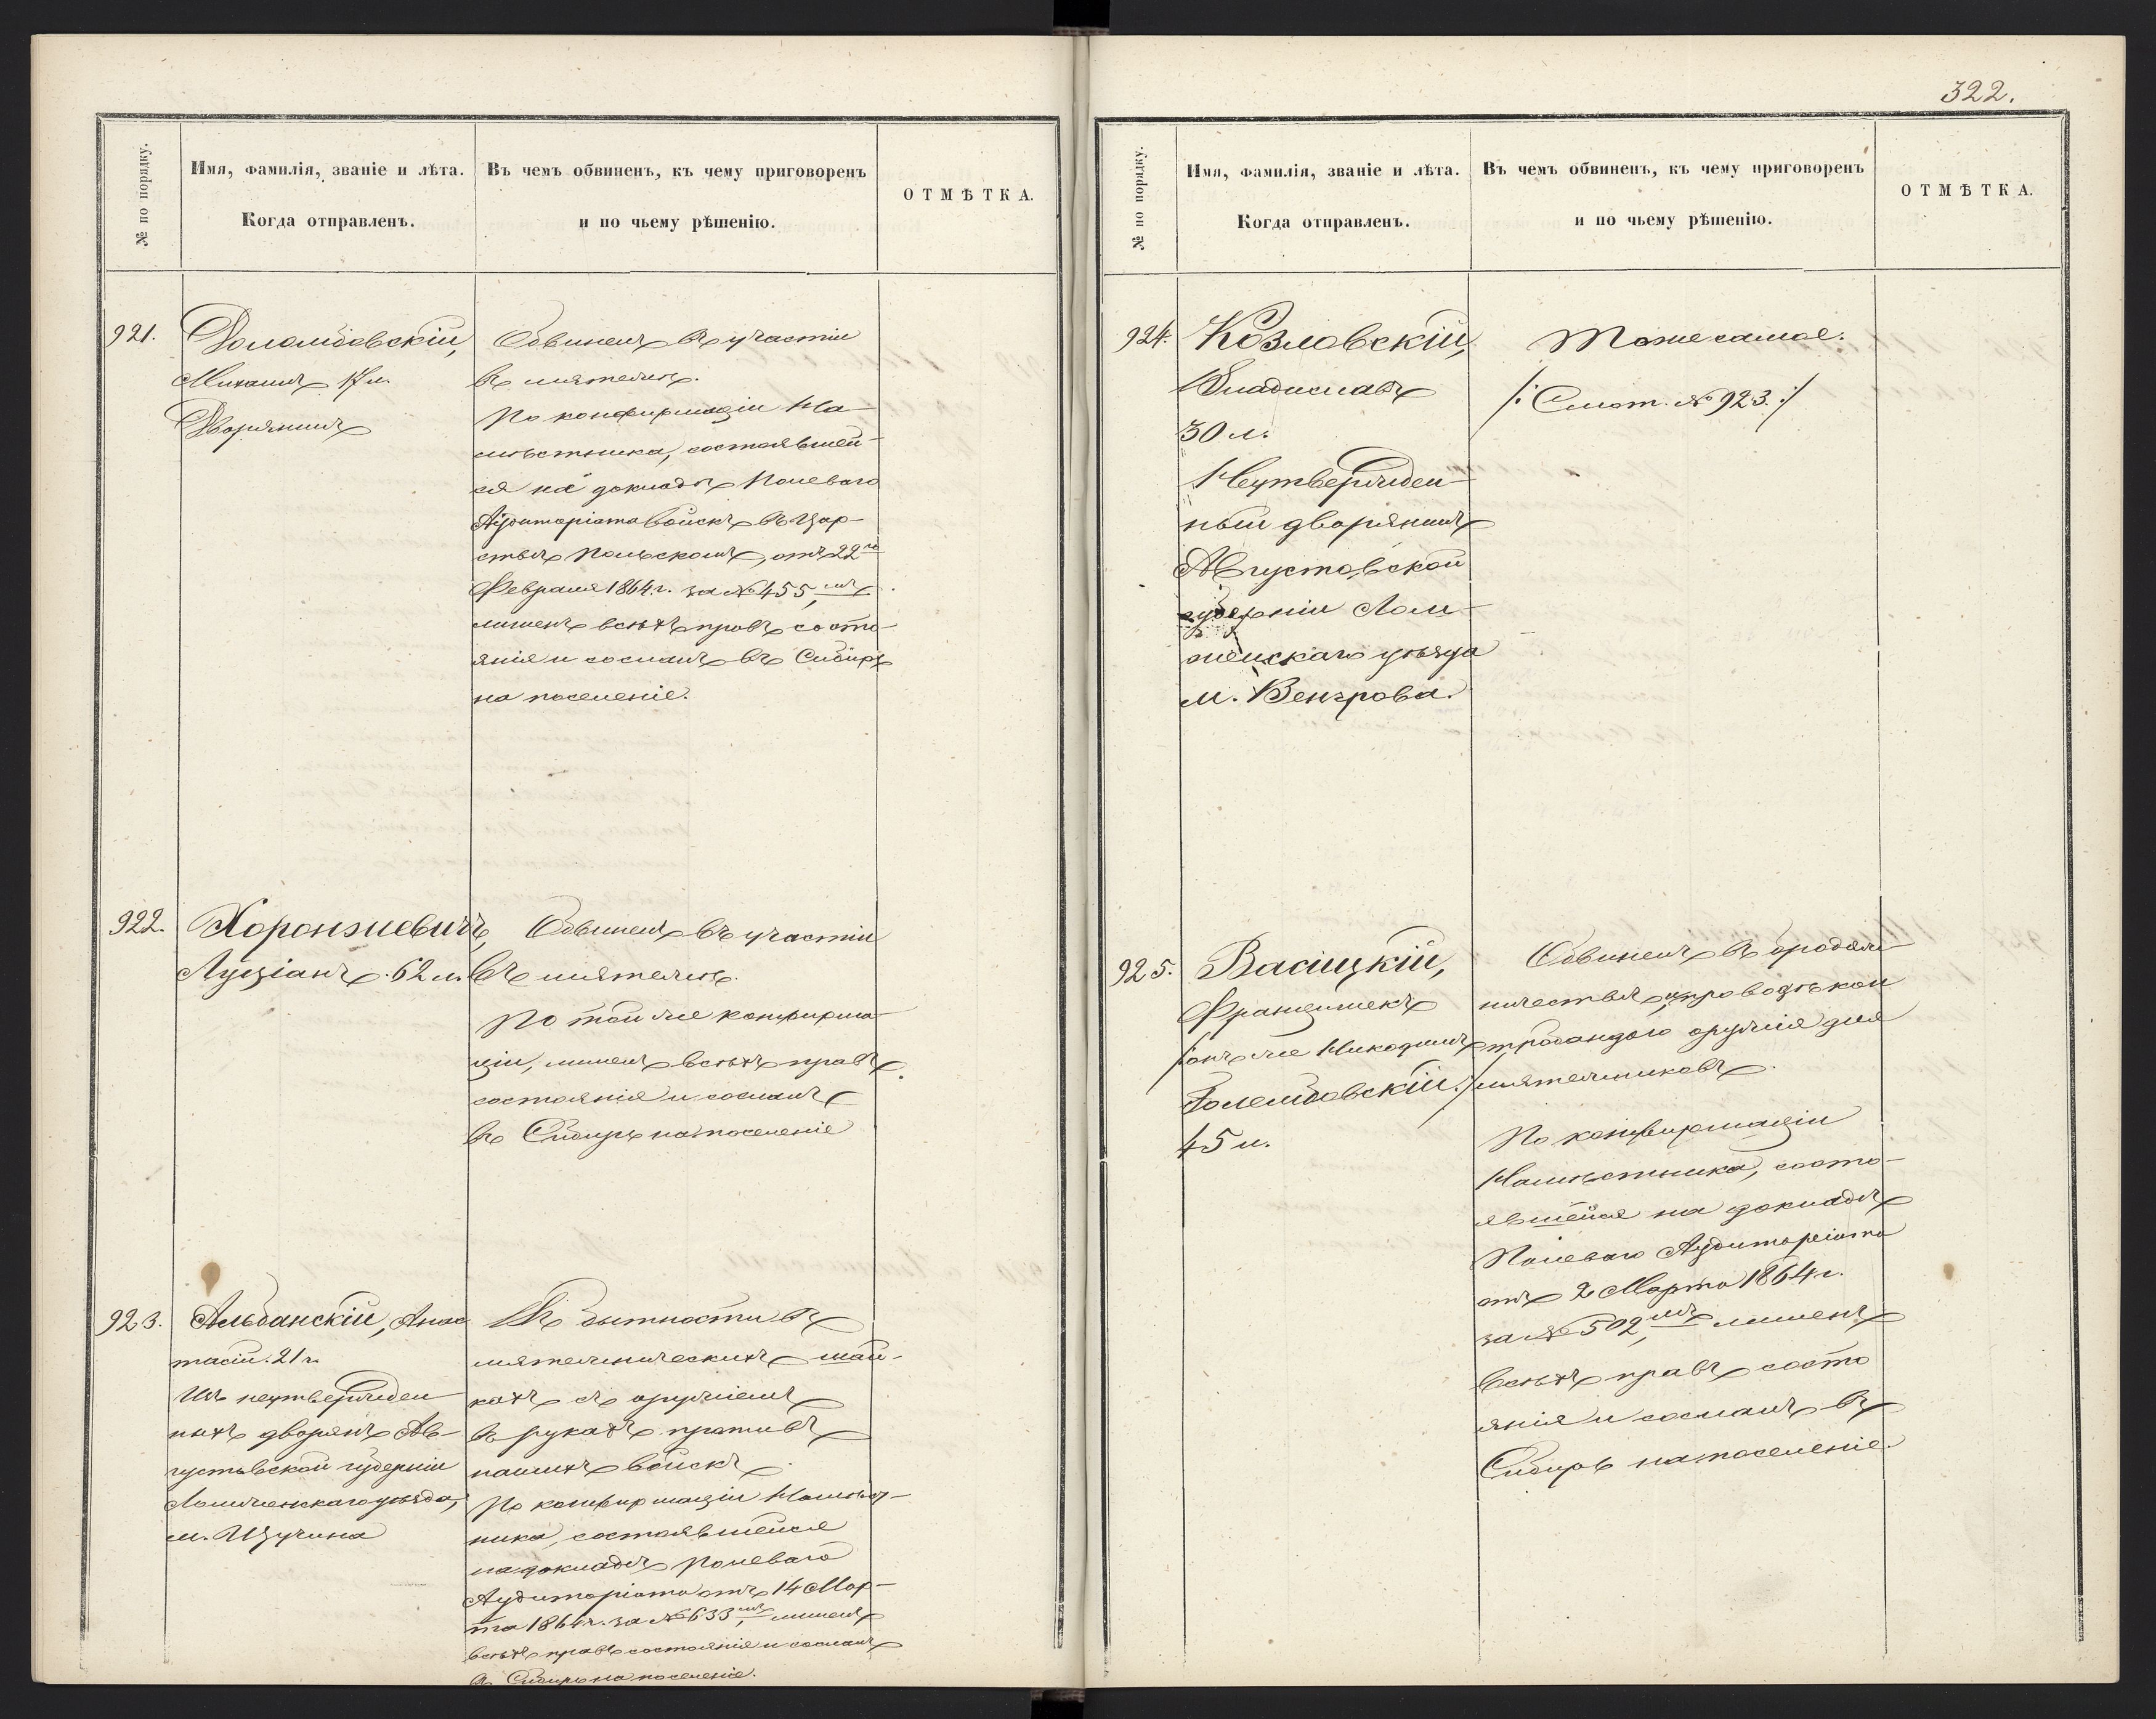 322.
№ по порядку.
Имя, фамилія, званіе и лѣта.
Когда отправленъ.
Въ чемъ обвиненъ, къ чему приговоренъ
и по чьему рѣшенію.
ОТМѢТКА.
921.
Михаилъ 17 л.
Дворянинъ
Обвиненъ въ участіи
въ мятежѣ.
По конфирмаціи На-
мѣстника, состоявшей-
ся на докладѣ Полеваго
Аудиторіата войскъ въ Цар-
ствѣ Польскомъ, отъ 22го
Февраля 1864 г. за № 455,мъ
лишенъ всѣхъ правъ состо-
янія и сосланъ въ Сибирь
на поселеніе.
922.
Хоронжевичъ,
Луціанъ. 62 л.
Обвиненъ въ участіи
въ мятежѣ.
По той же конфирма-
ціи, лишенъ всѣхъ правъ
состоянія и сосланъ
въ Сибирь на поселеніе
923.
Альбанскій, Анас
тасій. 21 г.
Изъ неутвержден
ныхъ дворянъ Ав-
густовской губерніи
Ломженскаго уѣзда,
м. Щучина
Въ бытности въ
мятежническихъ шай-
кахъ съ оружіемъ
въ рукахъ противъ
нашихъ войскъ.
По конфирмаціи Намѣст-
ника, состоявшейся
на докладѣ Полеваго
Аудиторіата отъ 14 Мар-
та 1864 г. за № 633,мъ лишенъ
всѣхъ правъ состоянія и сосланъ
въ Сибирь на поселеніе.
№ по порядку.
Имя, фамилія, званіе и лѣта.
Когда отправленъ.
Въ чемъ обвиненъ, къ чему приговоренъ
и по чьему рѣшенію.
ОТМѢТКА.
924.
Козловскій,
Владиславъ
30 л.
Неутвержден-
ный дворянинъ
Августовской
губерніи Лом-
женскаго уѣзда
м. Венгрова.
Тоже самое.
/: Смот. № 923. :/
925.
Васицкій,
Францишекъ
/онъ же Никодимъ
45 л.
Обвиненъ въ бродяж-
ничествѣ, провозѣ кон
трабандою оружія для
мятежниковъ.
По конфирмаціи
Намѣстника, состо-
явшейся на докладѣ
Полеваго Аудиторіата
отъ 2 Марта 1864 г.
за № 502,мъ лишенъ
всѣхъ правъ состо
янія и сосланъ въ
Сибирь на поселеніе.